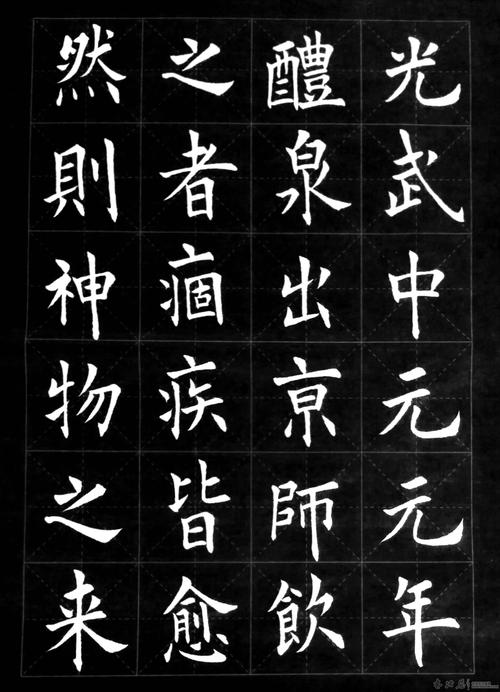 光武中元元年
醴泉出京師飲
之者痼疾皆愈
然則神物之来